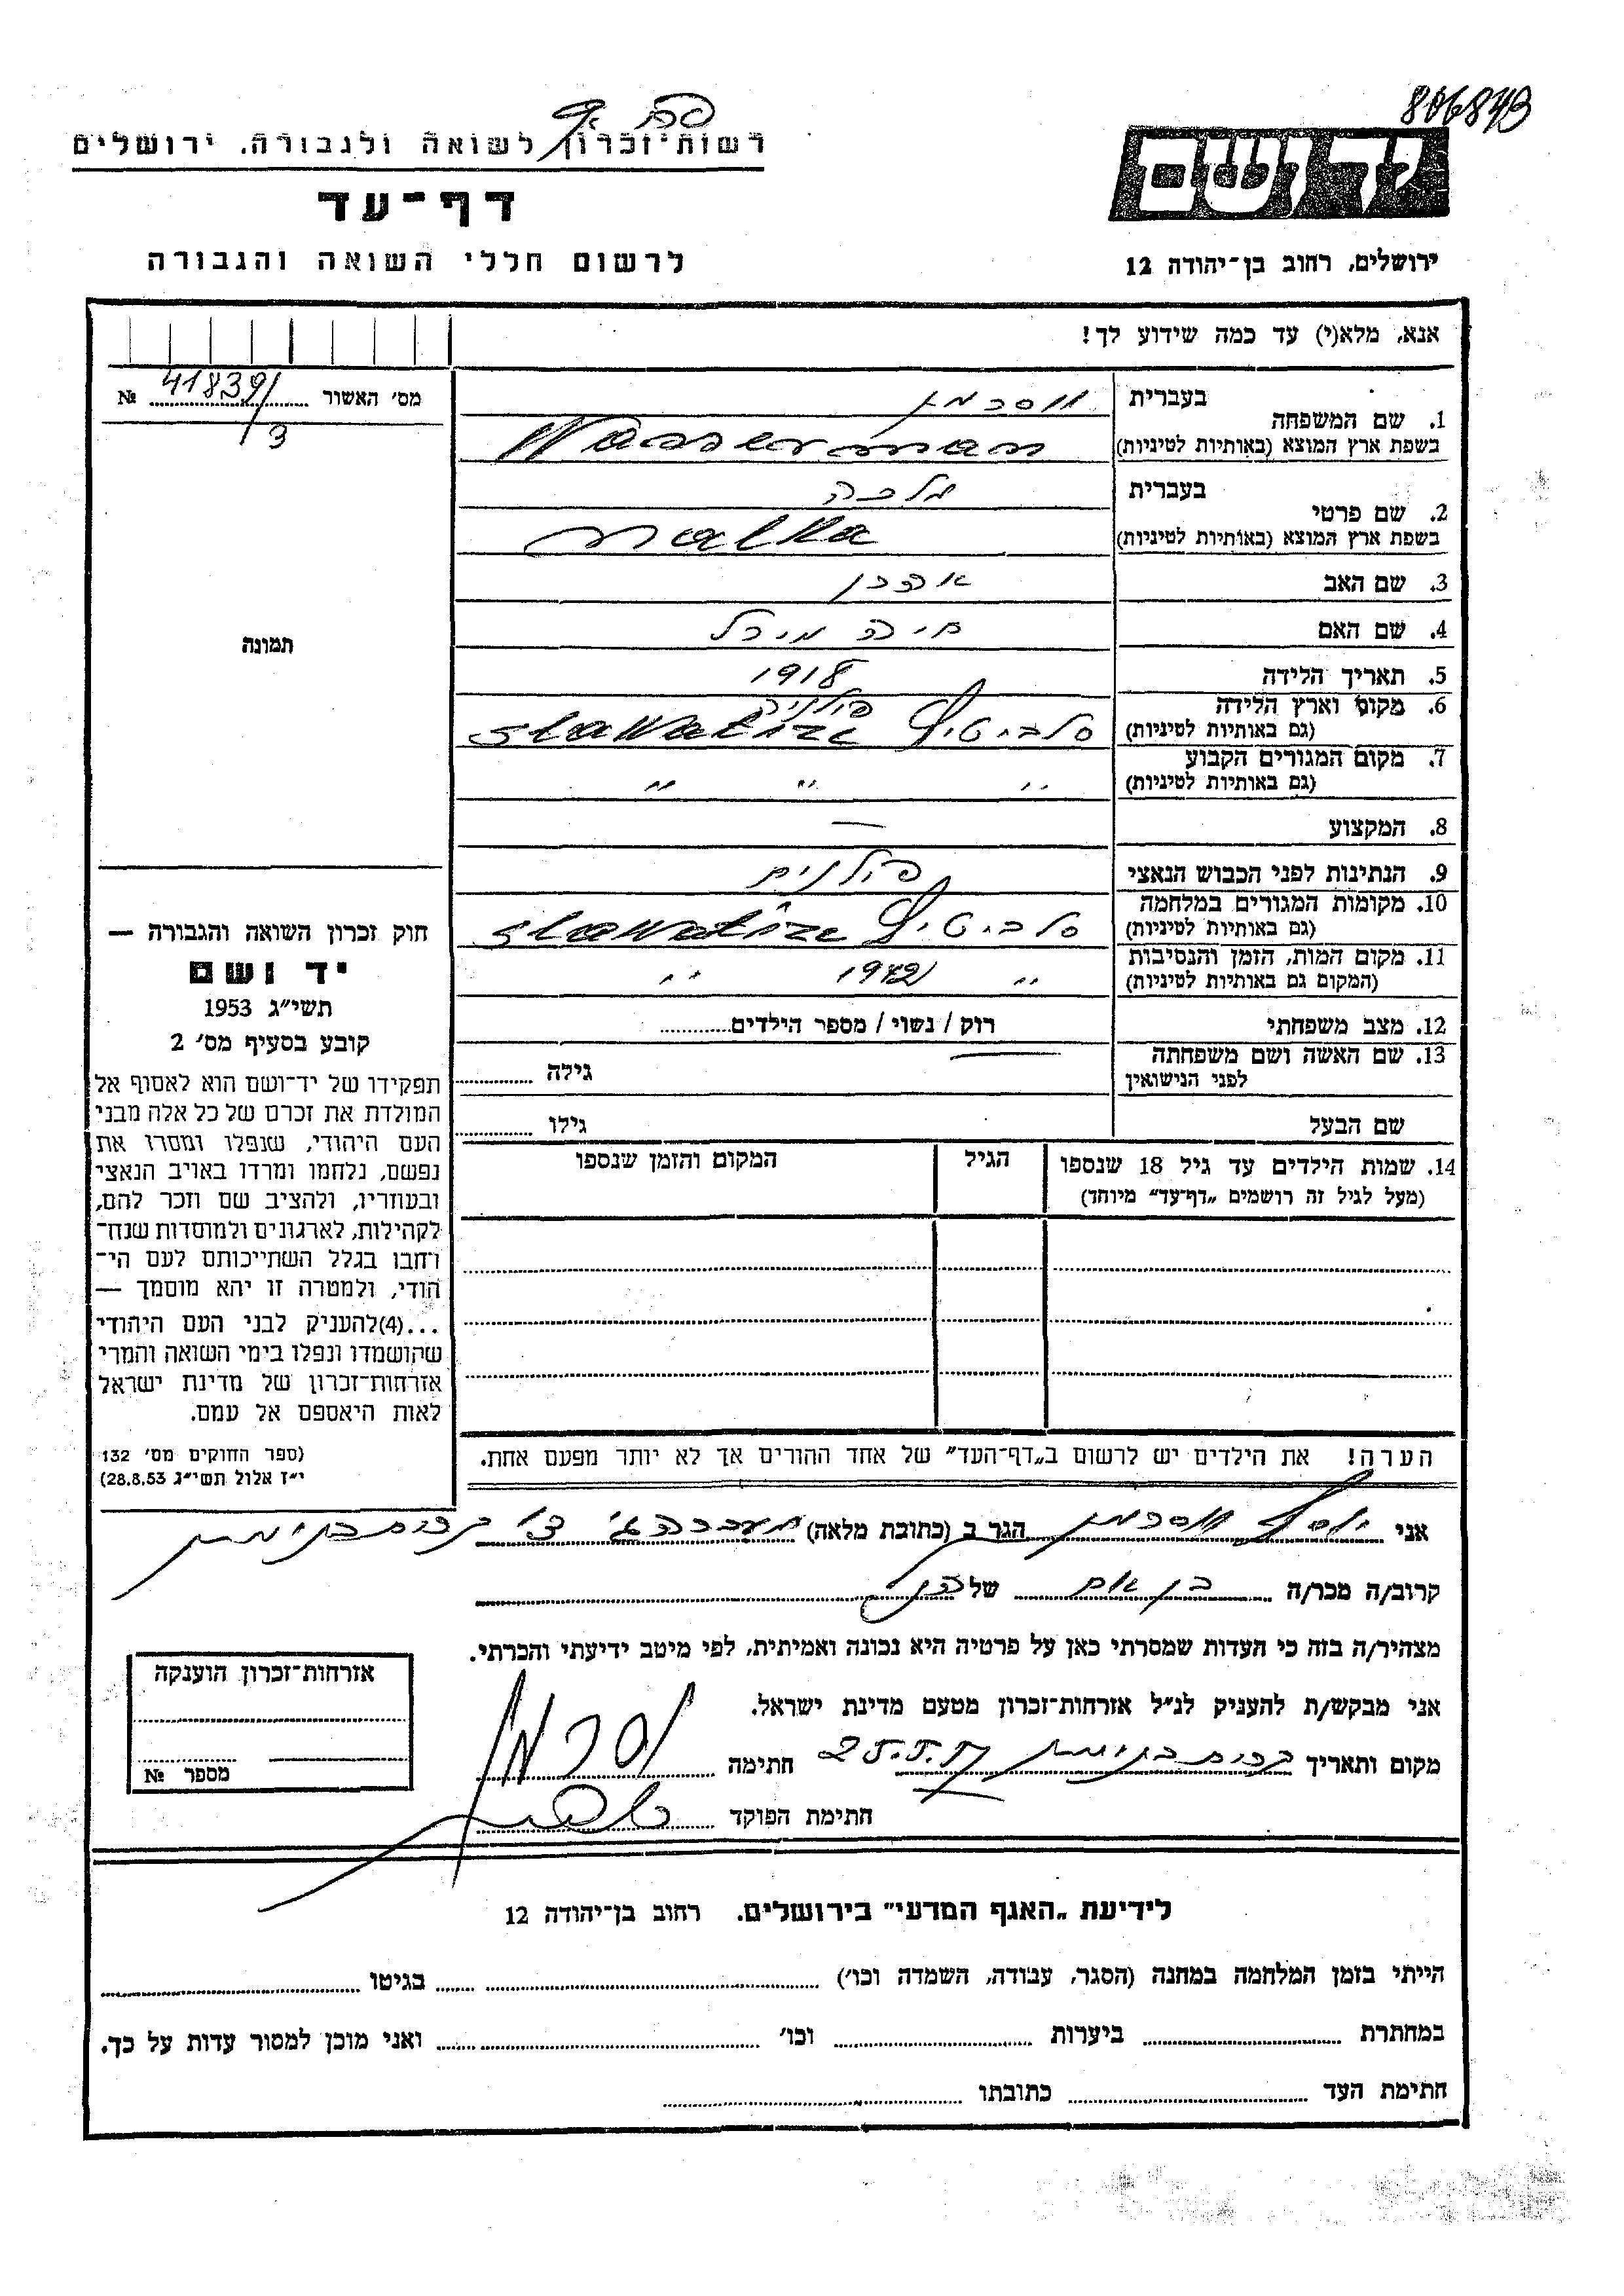 806843
רשות־זכרון לשואה ולגבורה, ירושלים
יד ושם
דף־עד
לרשום חללי השואה והגבורה
ירושלים, רחוב בן־יהודה 12
אנא, מלא(י) עד כמה שידוע לך!
מס׳ האשור 41839/3 №
1. שם המשפחה בעברית ווסרמן
בשפת ארץ המוצא (באותיות לטיניות) Wasserman
2. שם פרטי בעברית מלכה
בשפת ארץ המוצא (באותיות לטיניות) Malka
3. שם האב אהרן
4. שם האם חיה מירל
תמונה
5. תאריך הלידה 1918
6. מקום וארץ הלידה פולניה
(גם באותיות לטיניות) סלביטיץ Slawatize
7. מקום המגורים הקבוע
(גם באותיות לטיניות) " " "
8. המקצוע —
9. הנתינות לפני הכבוש הנאצי פולנית
10. מקומות המגורים במלחמה
(גם באותיות לטיניות) סלביטיץ Slawatize
11. מקום המות, הזמן והנסיבות
(המקום גם באותיות לטיניות) " 1942 "
12. מצב משפחתי רוק / נשוי / מספר הילדים
13. שם האשה ושם משפחתה — גילה
לפני הנישואין
שם הבעל גילו
14. שמות הילדים עד גיל 18 שנספו הגיל המקום והזמן שנספו
(מעל לגיל זה רושמים „דף־עד״ מיוחד)
חוק זכרון השואה והגבורה —
יד ושם
תשי״ג 1953
קובע בסעיף מס׳ 2
תפקידו של יד־ושם הוא לאסוף אל
המולדת את זכרם של כל אלה מבני
העם היהודי, שנפלו ומסרו את
נפשם, נלחמו ומרדו באויב הנאצי
ובעוזריו, ולהציב שם וזכר להם,
לקהילות, לארגונים ולמוסדות שנח־
רחבו בגלל השתייכותם לעם הי־
הודי, ולמטרה זו יהא מוסמך —
...(4)להעניק לבני העם היהודי
שהושמדו ונפלו בימי השואה והמרי
אזרחות־זכרון של מדינת ישראל
לאות היאספם אל עמם.
(ספר החוקים מס׳ 132
י״ז אלול תשי״ג 28.8.53)
הערה! את הילדים יש לרשום ב„דף־העד״ של אחד ההורים אך לא יותר מפעם אחת.
אני יוסף ווסרמן הגר ב (כתובת מלאה) מעברה ג׳ פרדס
קרוב/ה מכר/ה בן אם של
מצהיר/ה בזה כי העדות שמסרתי כאן על פרטיה היא נכונה ואמיתית, לפי מיטב ידיעתי והכרתי.
אני מבקש/ת להעניק לנ״ל אזרחות־זכרון מטעם מדינת ישראל.
מקום ותאריך חתימה
חתימת הפוקד
אזרחות־זכרון הוענקה
מספר №
לידיעת „האגף המדעי״ בירושלים. רחוב בן־יהודה 12
הייתי בזמן המלחמה במחנה (הסגר, עבודה, השמדה וכו׳) בגיטו
במחתרת ביערות וכו׳ ואני מוכן למסור עדות על כך.
חתימת העד כתובתו